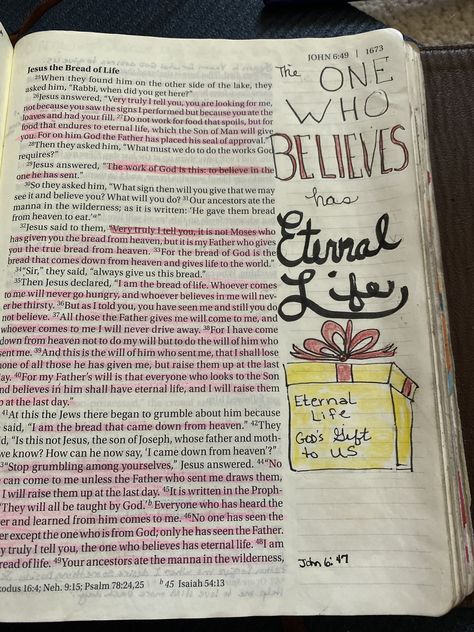 JOHN 6:49 | 1673
Jesus the Bread of Life
25When they found him on the other side of the lake, they
asked him, "Rabbi, when did you get here?"
26Jesus answered, "Very truly I tell you, you are looking for me,
not because you saw the signs I performed but because you ate the
loaves and had your fill. 27Do not work for food that spoils, but for
food that endures to eternal life, which the Son of Man will give
you. For on him God the Father has placed his seal of approval."
28Then they asked him, "What must we do to do the works God
requires?"
29Jesus answered, "The work of God is this: to believe in the
one he has sent."
30So they asked him, "What sign then will you give that we may
see it and believe you? What will you do? 31Our ancestors ate the
manna in the wilderness; as it is written: 'He gave them bread
from heaven to eat.'a"
32Jesus said to them, "Very truly I tell you, it is not Moses who
has given you the bread from heaven, but it is my Father who gives
you the true bread from heaven. 33For the bread of God is the
bread that comes down from heaven and gives life to the world."
34"Sir," they said, "always give us this bread."
35Then Jesus declared, "I am the bread of life. Whoever comes
to me will never go hungry, and whoever believes in me will nev-
er be thirsty. 36But as I told you, you have seen me and still you do
not believe. 37All those the Father gives me will come to me, and
whoever comes to me I will never drive away. 38For I have come
down from heaven not to do my will but to do the will of him who
sent me. 39And this is the will of him who sent me, that I shall lose
none of all those he has given me, but raise them up at the last
day. 40For my Father's will is that everyone who looks to the Son
and believes in him shall have eternal life, and I will raise them
up at the last day."
41At this the Jews there began to grumble about him because
said, "I am the bread that came down from heaven." 42They
"Is this not Jesus, the son of Joseph, whose father and moth-
we know? How can he now say, 'I came down from heaven'?"
43"Stop grumbling among yourselves," Jesus answered. 44"No
can come to me unless the Father who sent me draws them,
I will raise them up at the last day. 45It is written in the Proph-
'They will all be taught by God.'b Everyone who has heard the
er and learned from him comes to me. 46No one has seen the
er except the one who is from God; only he has seen the Father.
y truly I tell you, the one who believes has eternal life. 48I am
bread of life. 49Your ancestors ate the manna in the wilderness,
xodus 16:4; Neh. 9:15; Psalm 78:24,25 b 45 Isaiah 54:13
The ONE
WHO
BELIEVES
has
Eternal
Life
Eternal
Life
God's Gift
to US
John 6:47